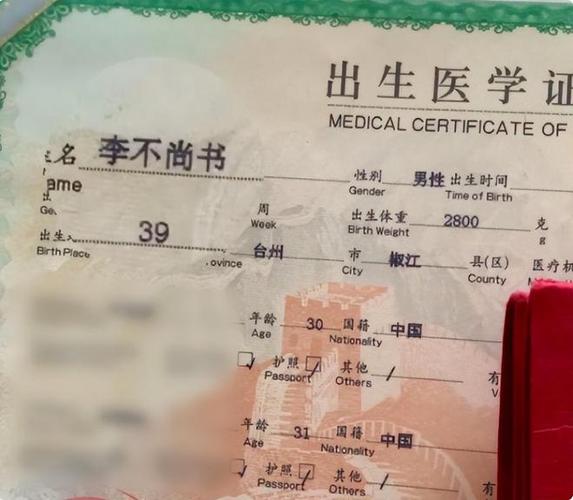 出生医学证
MEDICAL CERTIFICATE OF
名 李不尚书 性别 男性 出生时间
ame Gender Time of Birth
周 出生体重 2800 克
Week Birth Weight g
39
出生 台州 市 椒江 县(区) 医疗机
Birth Place ovince City County
年龄 30 国籍 中国
Age Nationality
护照 其他 / 有
Passport Others V
年龄 31 国籍 中国
Age Nationality
护照 其他 / 有
Passport Others